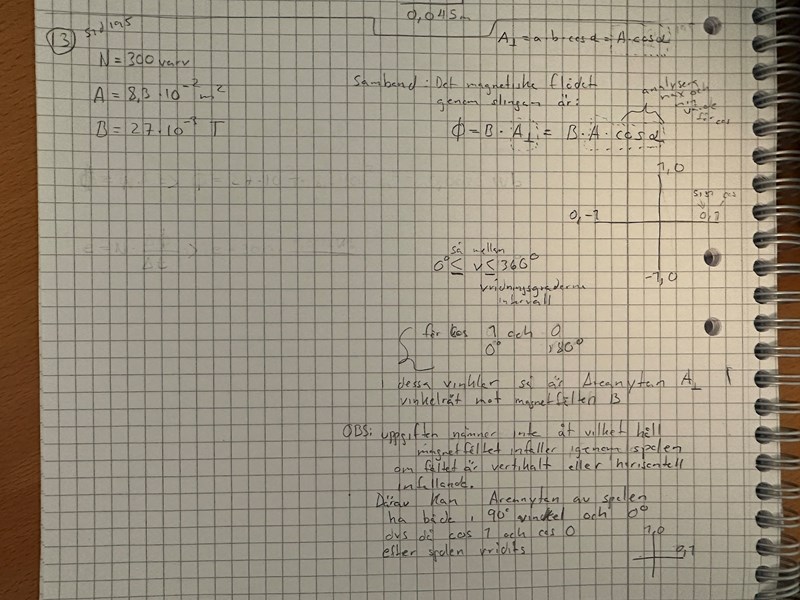 0,045m
A⊥ = a·b·cosα = A·cosα
13
sid 195
N = 300 varv
A = 8,3·10⁻² m²
B = 27·10⁻³ T
Samband: Det magnetiske flödet
genom slingan är:
analysera
max och
min
värde
för cos
Φ = B·A⊥ = B·A·cosα
1,0
sin cos
0,-1
0,1
-1,0
så mellan
0° ≤ v ≤ 360°
vridningsgraderna
intervall
för cos 1 och 0
0° 180°
i dessa vinklar så är Areanytan A⊥
vinkelrät mot magnetfälten B
OBS: uppgiften nämner inte åt vilket håll
magnetfältet infaller igenom spolen
om fältet är vertikalt eller horisentell
infallande.
Därav kan Areanytan av spolen
ha både i 90° vinkel och 0°
dvs då cos 1 och cos 0
efter spolen vridits
1,0
0,1